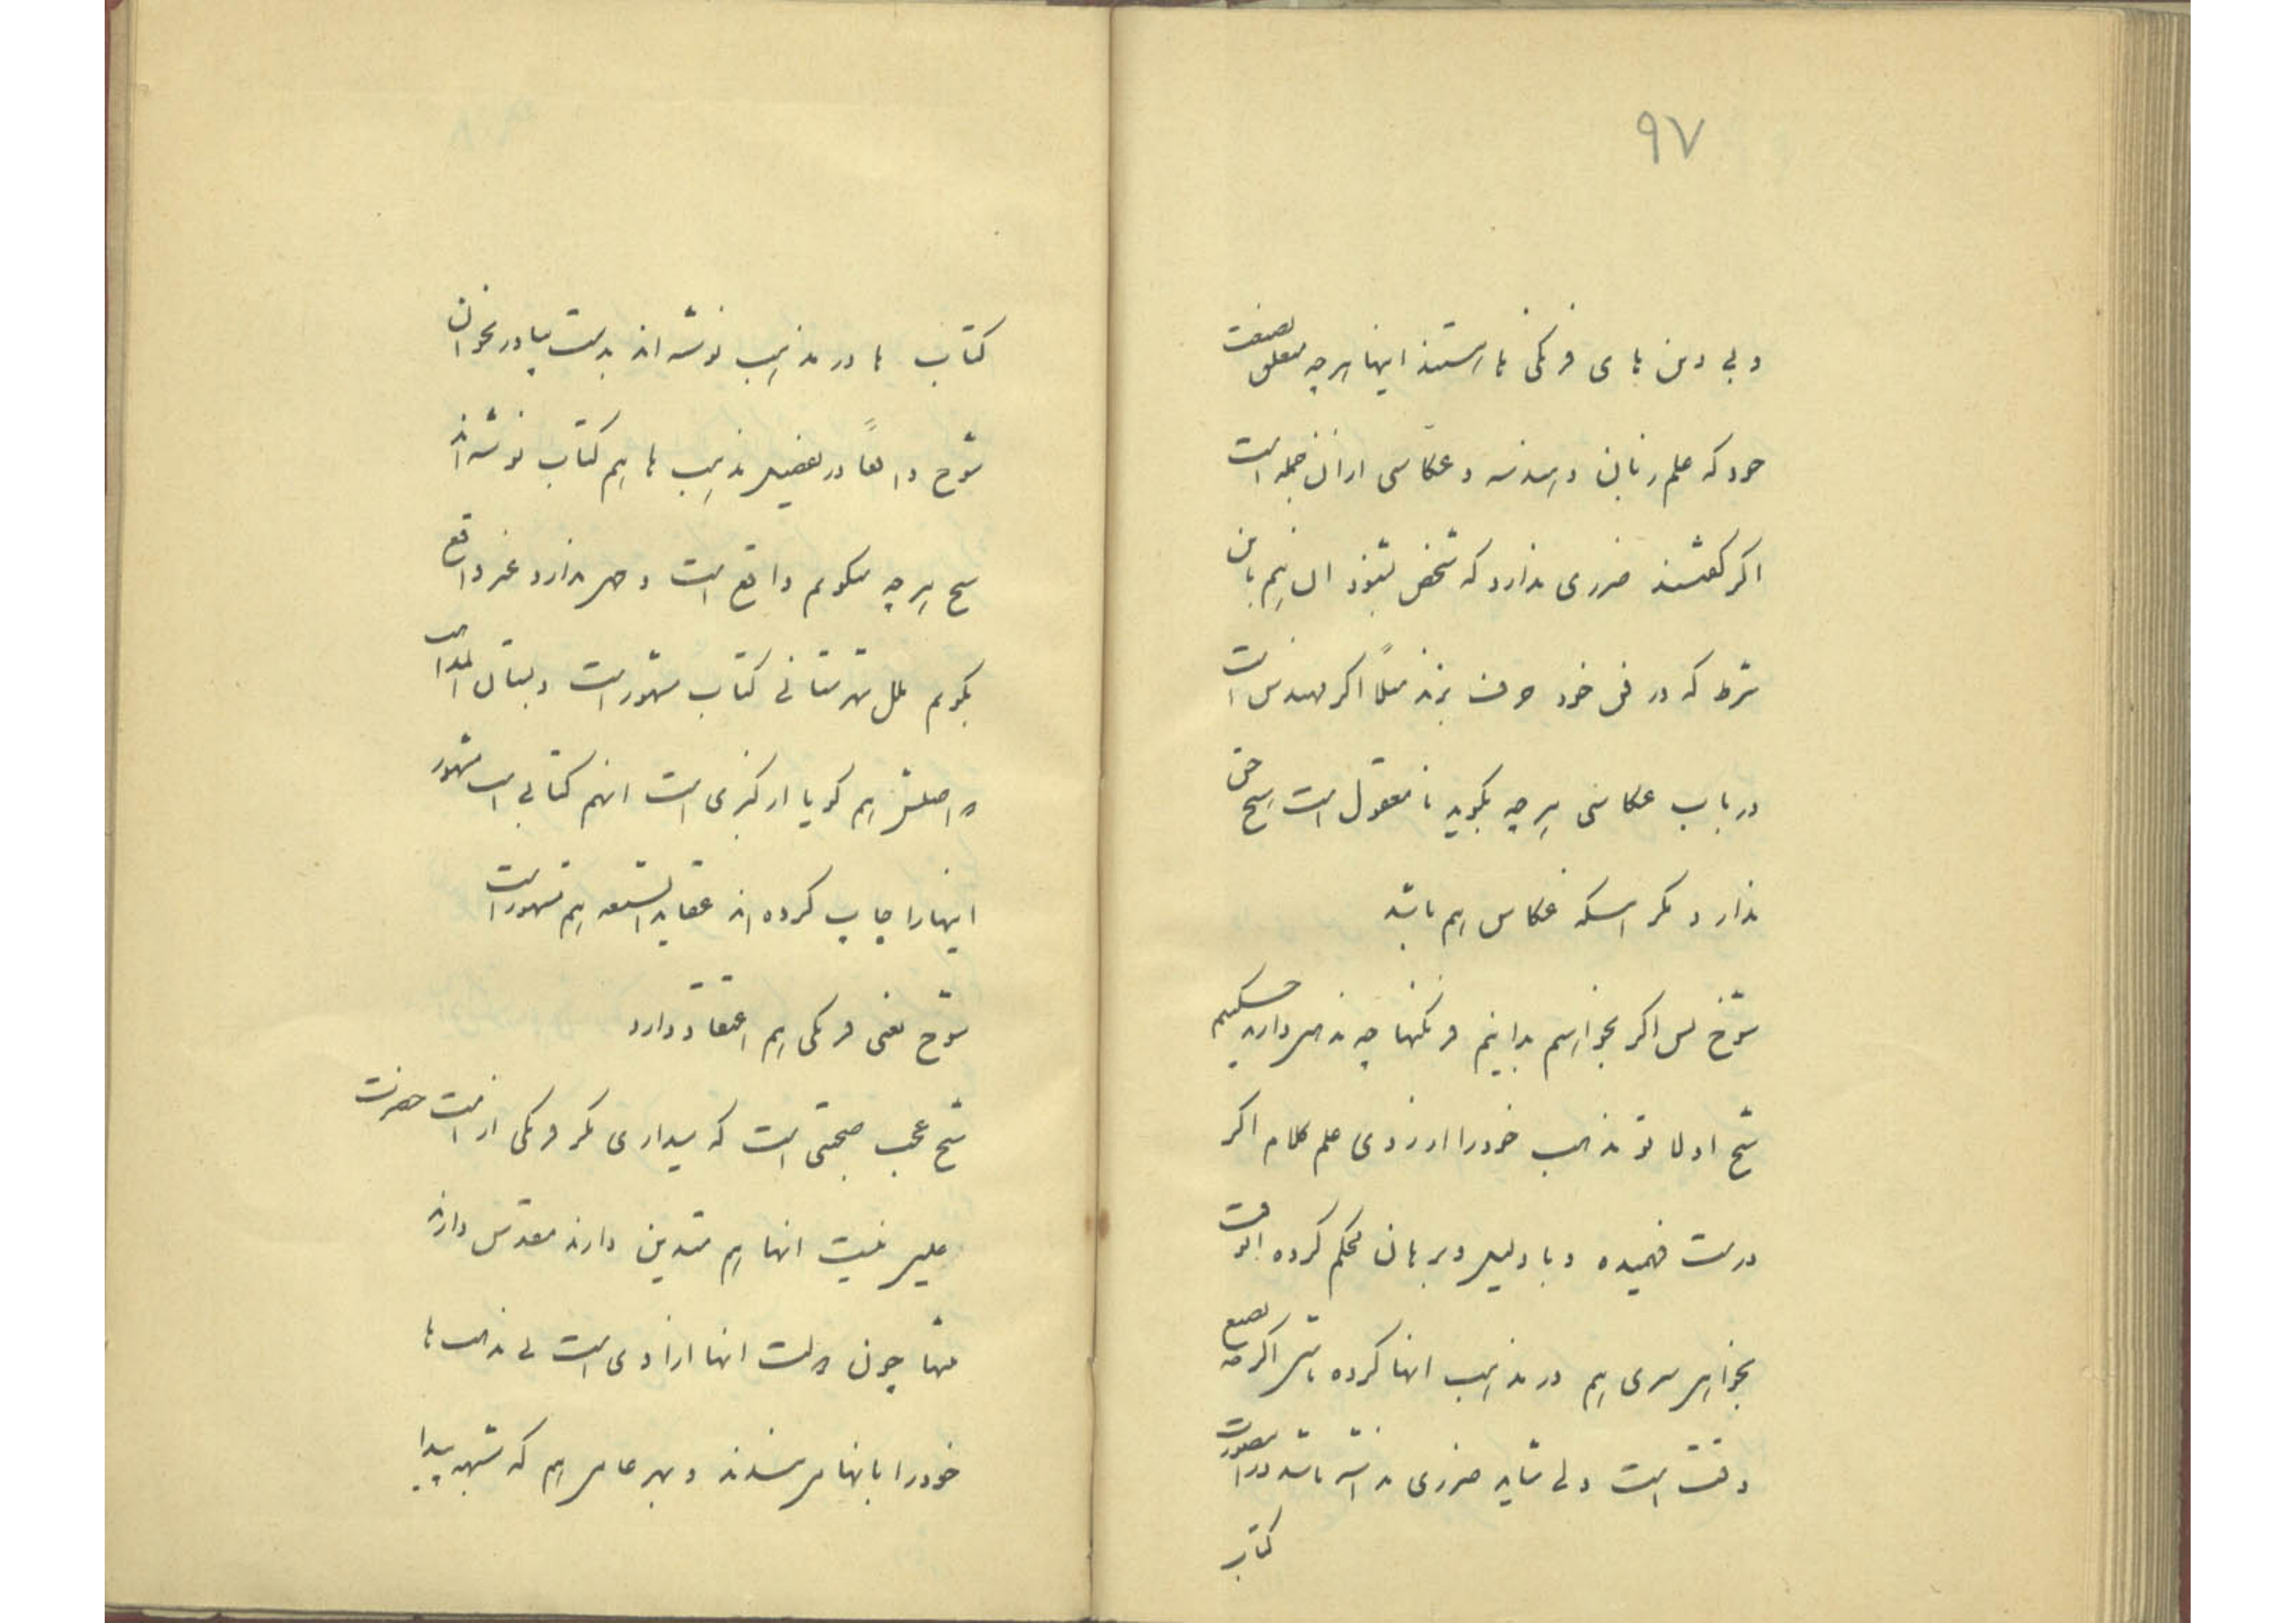 ۹۷
و بی دین های فرنگی ها هستند اینها هرچه متعلق بصنعت
خود که علم زبان و هندسه و عکاسی از ان جمله است
اگر گفتند ضرری ندارد که شخص بشنود ان هم باین
شرط که در فن خود حرف بزند مثلاً اگر مهندس است
در باب عکاسی هرچه بگوید نامعقول است هیچ حق
ندارد مگر اینکه عکاس هم باشد
شوخ پس اگر بخواهیم بدانیم فرنگیها چه مذهب دارند چه کنیم
شیخ اولا تو مذهب خود را از روی علم کلام اگر
درست فهمیده و با دلیل و برهان محکم کرده انوقت
بخواهی سیری هم در مذهب انها کرده باشی اگرچه تضییع
وقت است ولی شاید ضرری نداشته باشد در انصورت
کتاب
کتاب ها در مذهب نوشته اند بدست بیاور بخوان
شوخ واقعاً در تفصیل مذهب ها هم کتاب نوشته اند
شیخ هرچه میگویم واقع است و جهت ندارد غیر واقع
بگویم ملل شهرستانی کتاب مشهور است دبستان المذاهب
که اصلش هم گویا از گبری است انهم کتابی است مشهور
اینها را چاپ کرده اند عقاید الشیعه هم مشهور است
شوخ یعنی فرنگی هم اعتقاد دارد
شیخ عجب صحبتی است که میداری مگر فرنگی از امت حضرت
عیسی نیست انها هم متدین دارند مقدس دارند
منتها چون در ملت انها ازادی است بی مذهب ها
خود را بانها میبندند و بهر عامی هم که شبهه پیدا